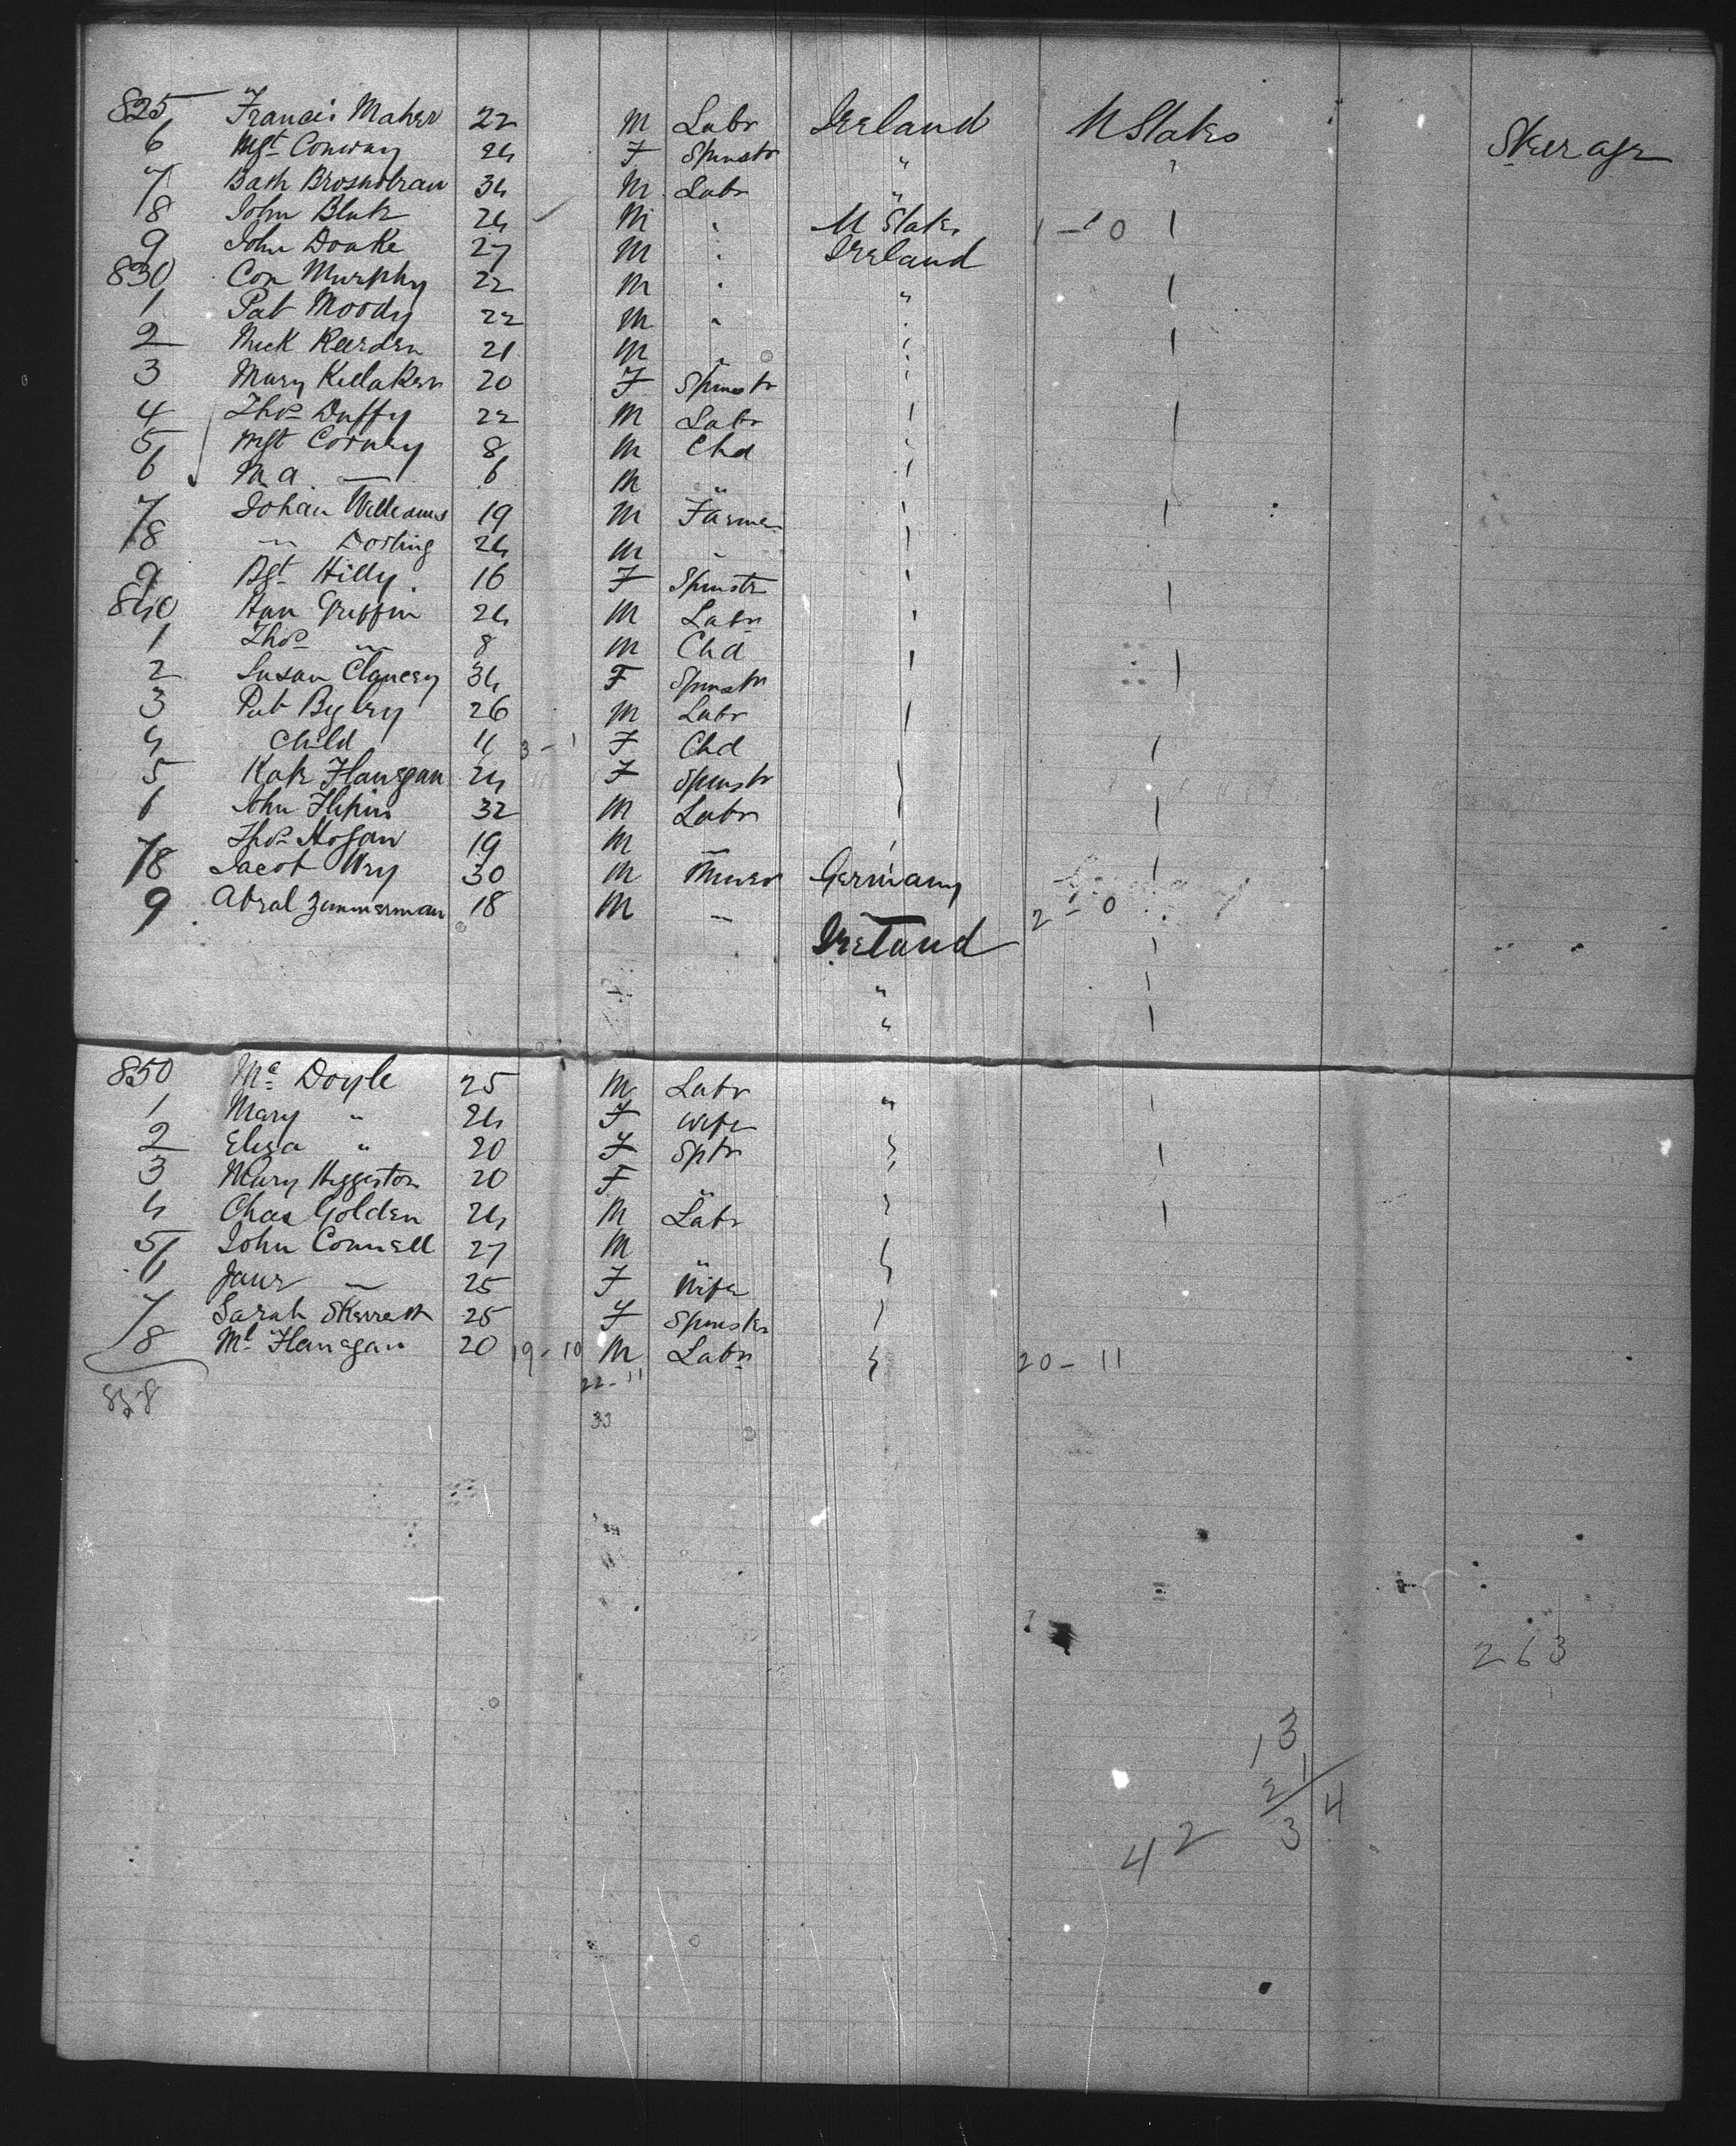 825 Francis Maher 22 M Labr Ireland U States Steerage
6 Mgt Conway 24 F Spinstr " "
7 34 M Labr "
8 John Blake 24 M " U States 1-0
9 John Doake 27 M " Ireland
830 Con Murphy 22 M " "
1 Pat Moody 22 M " "
2 Mick Reerden 21 M "
3 Mary 20 F Spinstr "
4 Thos Duffy 22 M Labr
5 Mgt 8 M Chd
6 M a. — 6 M "
7 Johan Williams 19 M Farmer
8 " Dorling 24 M "
9 Bgt Hilly 16 F Spinstr
840 Han Griffin 24 M Labr
1 Thos " 8 M Chd
2 Susan Clancey 34 F Spinstr
3 Pat 26 M Labr
4 Child 11 3-1 F Chd
5 Kate Flanegan 24 F Spinstr
6 John 32 M Labr
7 Thos Hogan 19 M "
8 Jacob Wry 30 M Miner Germany
9 Abral Zimmerman 18 M " 2-0
Ireland
"
"
850 Mc Doyle 25 M Labr "
1 Mary " 24 F Wife
2 Eliza " 20 F Sptr
3 Mary Higgeston 20 F "
4 Chas Golden 24 M Labr
5 John Connell 27 M "
6 Jane — 25 F Wife
7 Sarah Skerrett 25 F Spinster
8 Ml Flanagan 20 19-10 M Labr 20-11
858 22-11
33
263
13
21
3 4
42